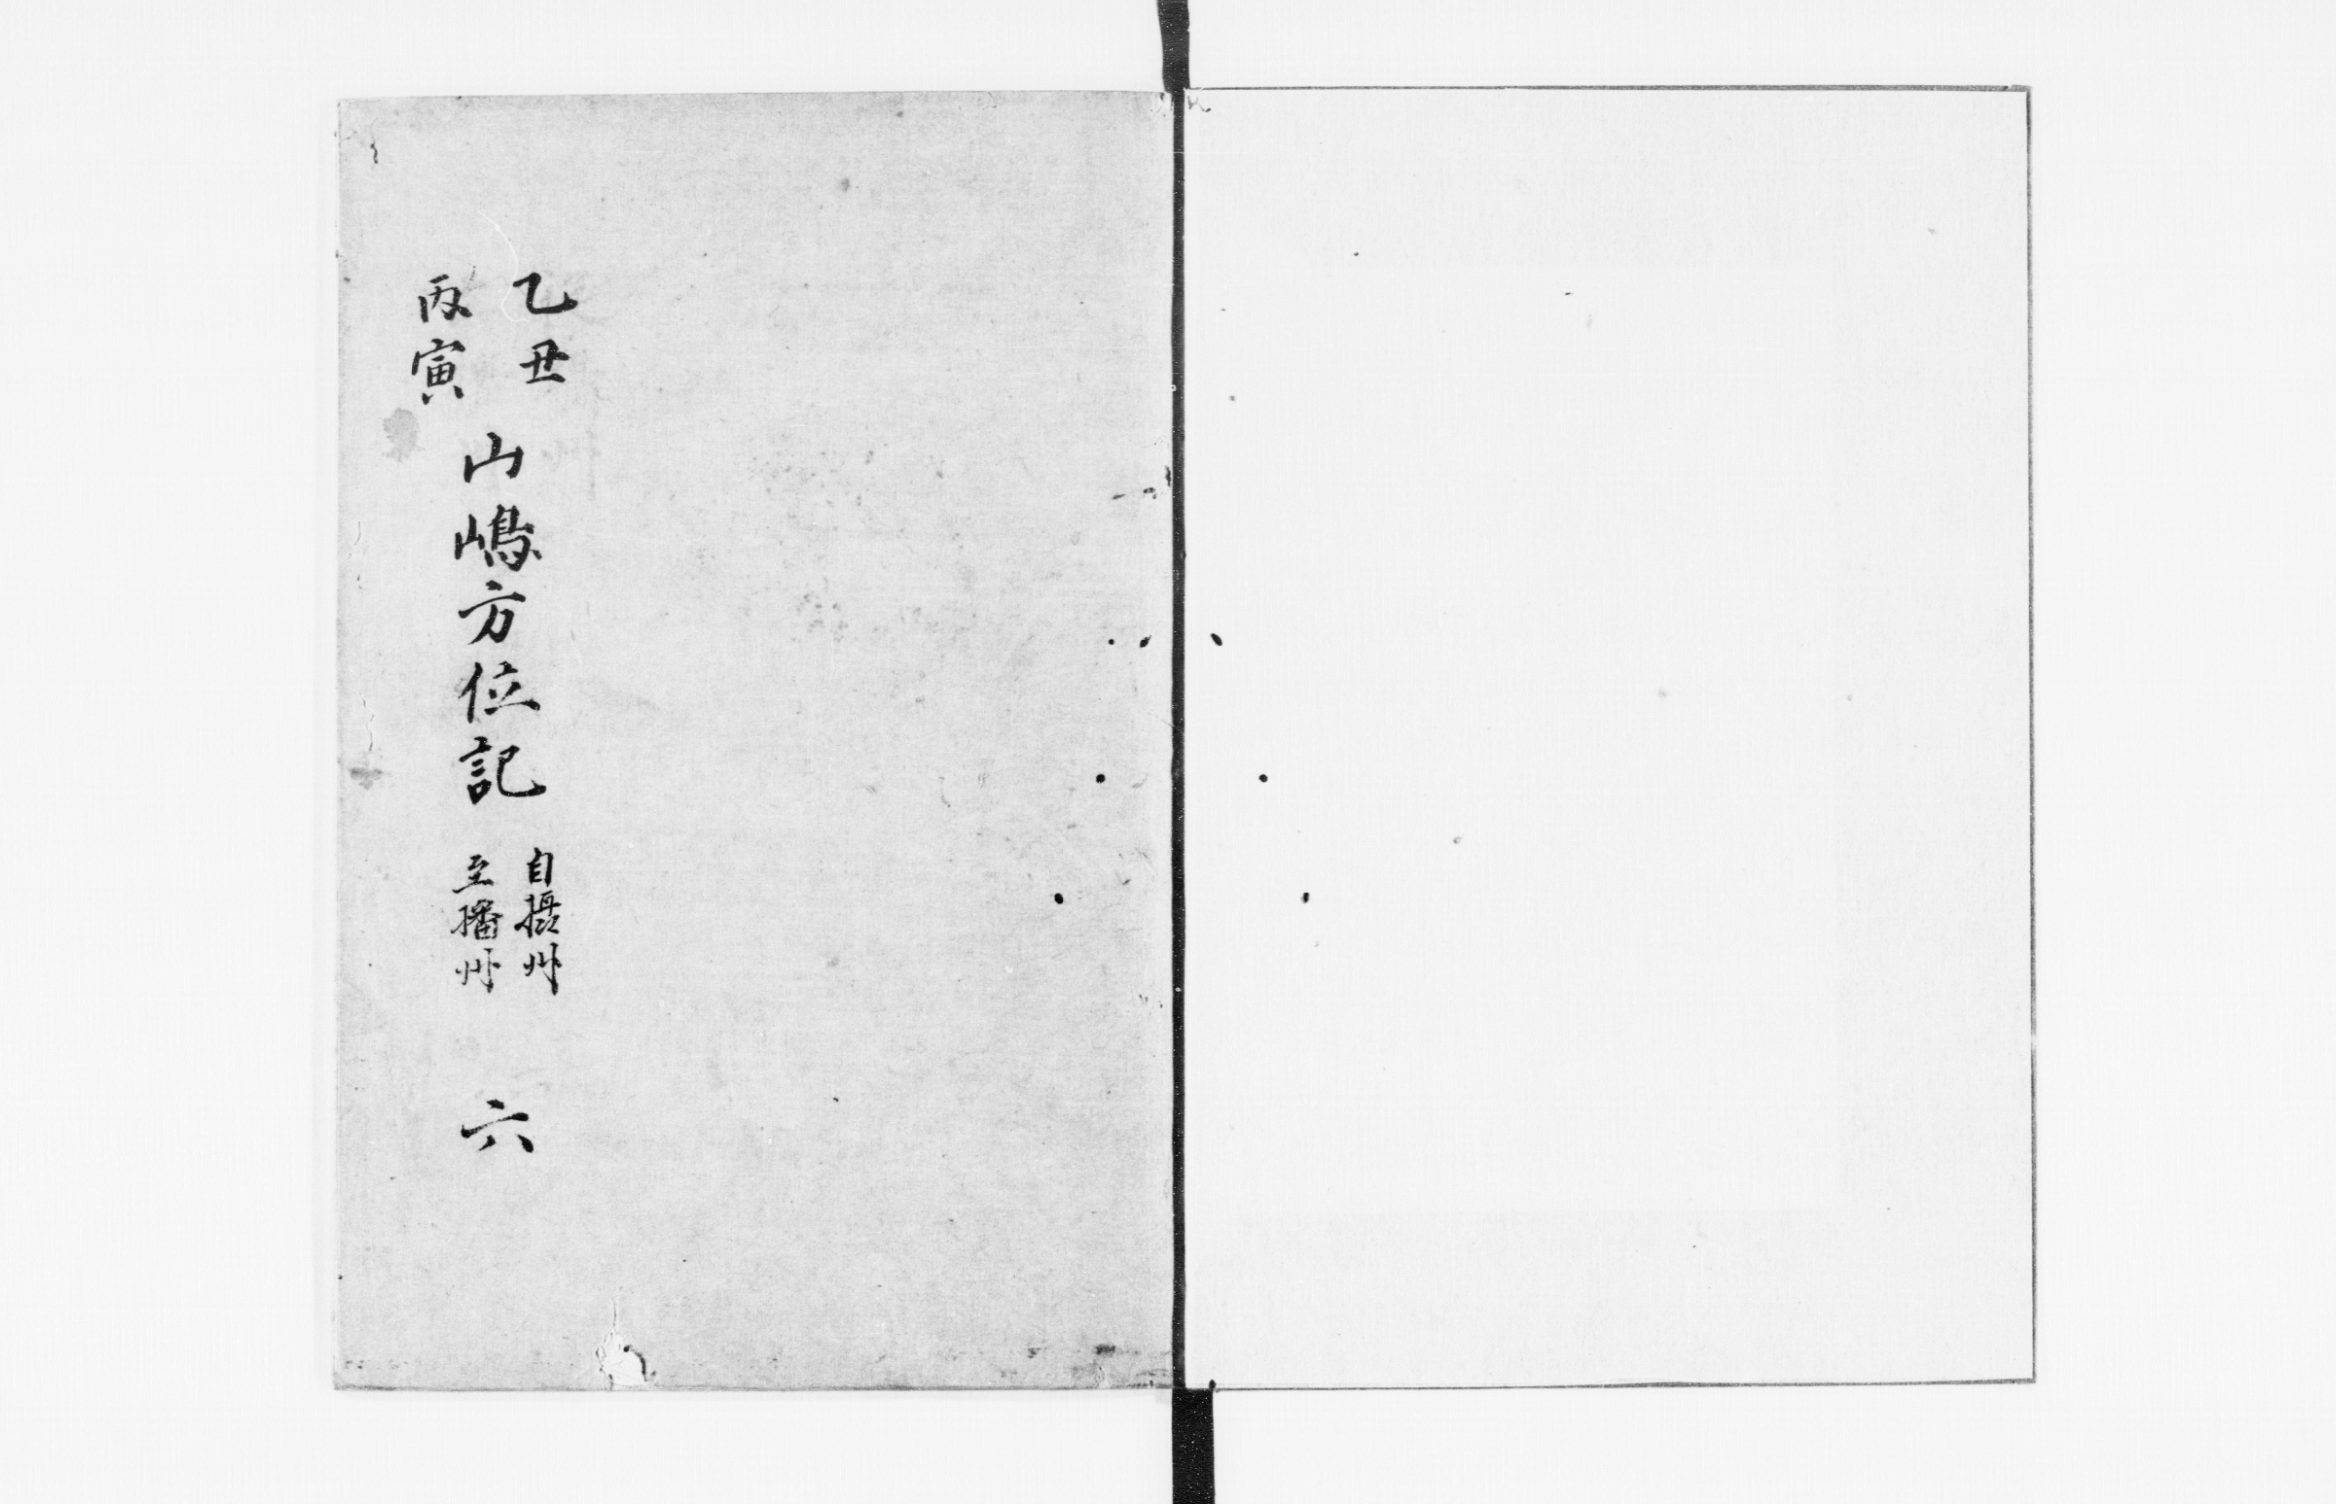 乙丑
丙寅
山嶋方位記
自摂州
至播州
六